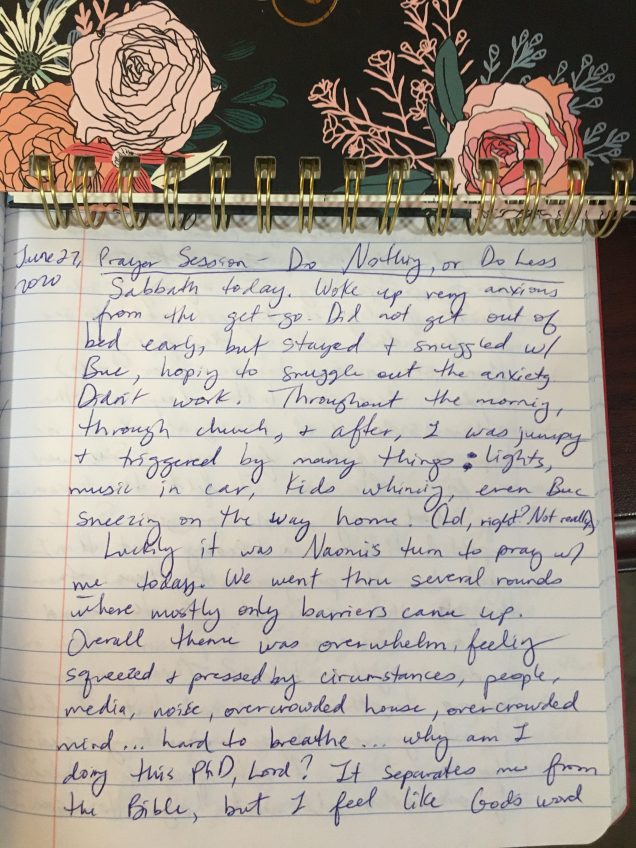 June 27, 2020
Prayer Session - Do Nothing, or Do Less
Sabbath today. Woke up very anxious
from the get-go. Did not get out of
bed early, but stayed + snuggled w/
Buc, hoping to snuggle out the anxiety
Didn't work. Throughout the morning,
through church, + after, I was jumpy
+ triggered by many things: lights,
music in car, kids whining, even Buc
sneezing on the way home. (Lol, right? Not really)
Luckily it was Naomi's turn to pray w/
me today. We went thru several rounds
where mostly only barriers came up.
Overall theme was overwhelm, feeling
squeezed + pressed by circumstances, people,
media, noise, overcrowded house, overcrowded
mind... hard to breathe... why am I
doing this PhD, Lord? It separates me from
the Bible, but I feel like God's word